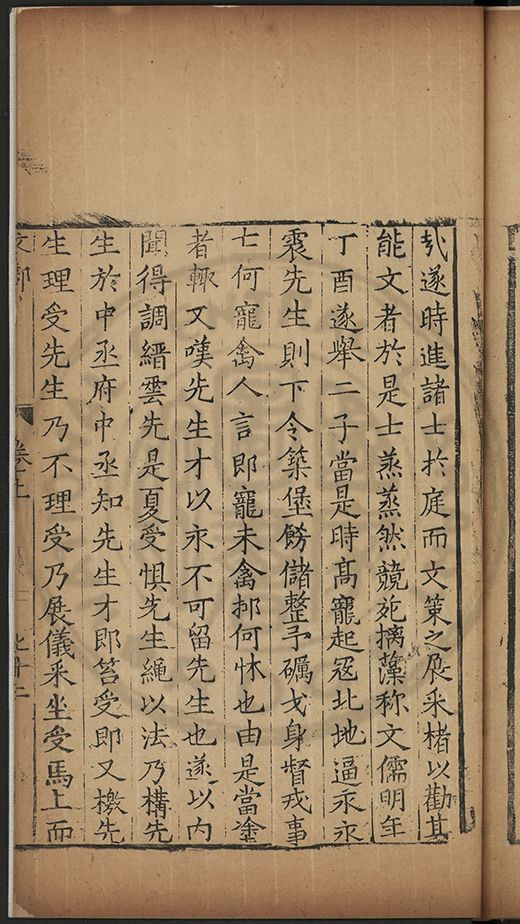 哉遂時進諸士扵庭而文策之展采楮以勸其
能文者於是士蒸蒸然競於摛藻称文儒明年
丁酉遂舉二子當是時髙寵起冦北地逼永永
震先生則下令築堡餝儲整予礪戈身督戎事
士何寵禽人言即寵未禽邦何怵也由是當塗
者輙又嘆先生才以永不可留先生也遂以内
聞得調縉雲先是夏受惧先生繩以法乃構先
生於中丞府中丞知先生才即笞受即又檄先
生理受先生乃不理受乃展儀釆坐受馬上而
卷十